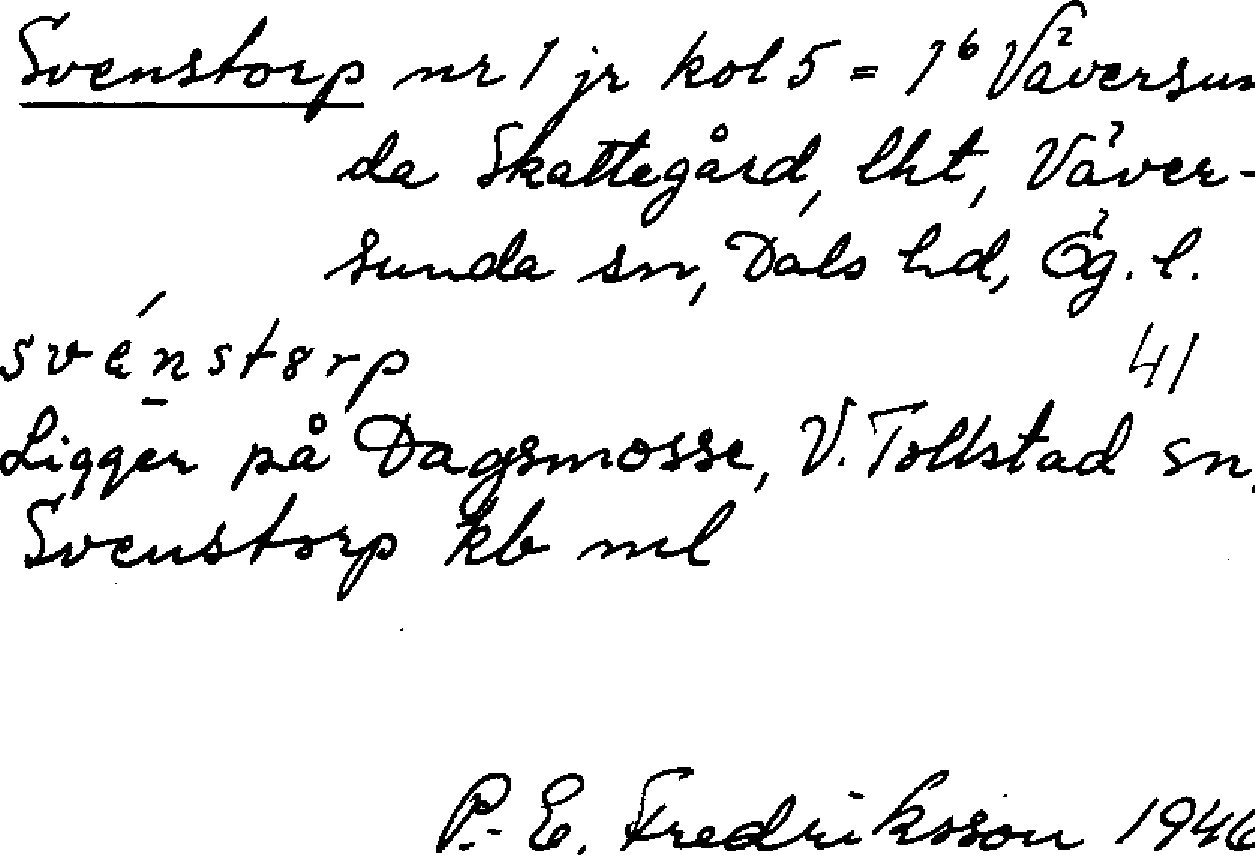 Svenstorp nr 1 jr kol 5 = 1⁶ Väversun
da Skattegård, lht, Väver-
sunda sn, Dals hd, Ög. l.
svénstorp 41
Ligger på Dagsmosse, V. Tollstad sn,
Svenstorp kb ml
P. E. Fredriksson 1946